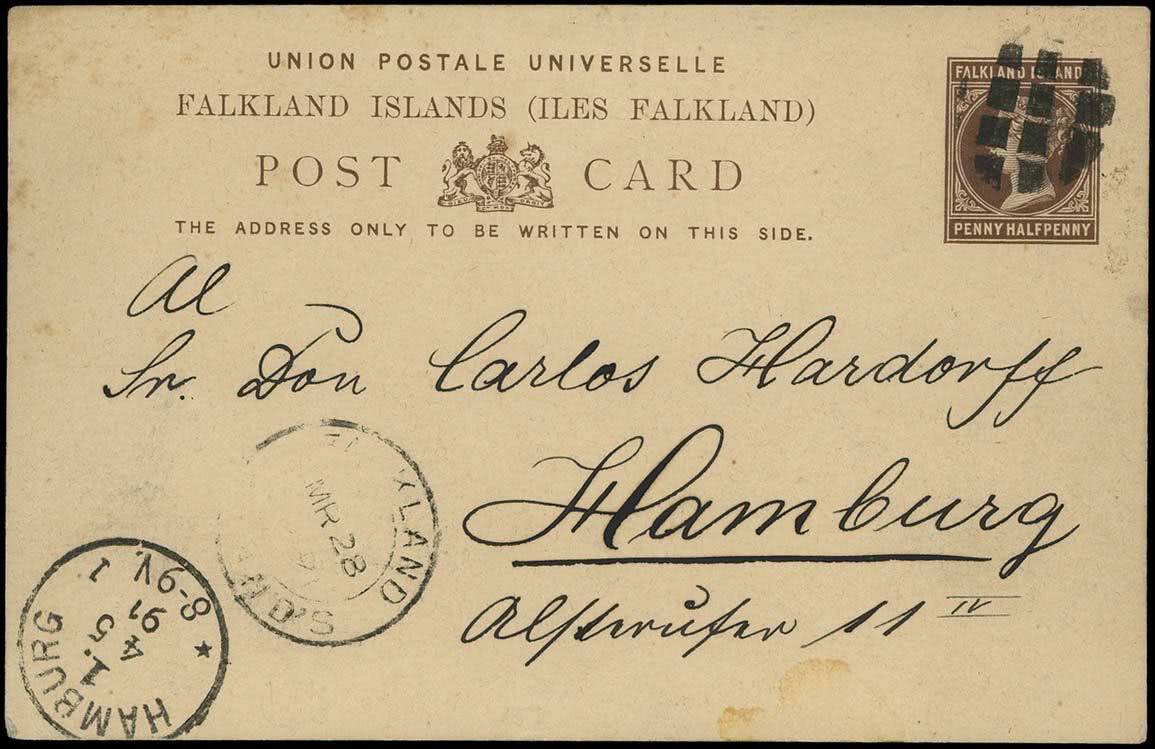 UNION POSTALE UNIVERSELLE
FALKLAND ISLANDS (ILES FALKLAND)
POST CARD
THE ADDRESS ONLY TO BE WRITTEN ON THIS SIDE.
FALKLAND ISLANDS
PENNY HALFPENNY
Al
Sr. Don Carlos Hardorff
Hamburg
Alsterufer 11 IV
FALKLAND
MR 28
91
HAMBURG 1
4 5
91
8-9V